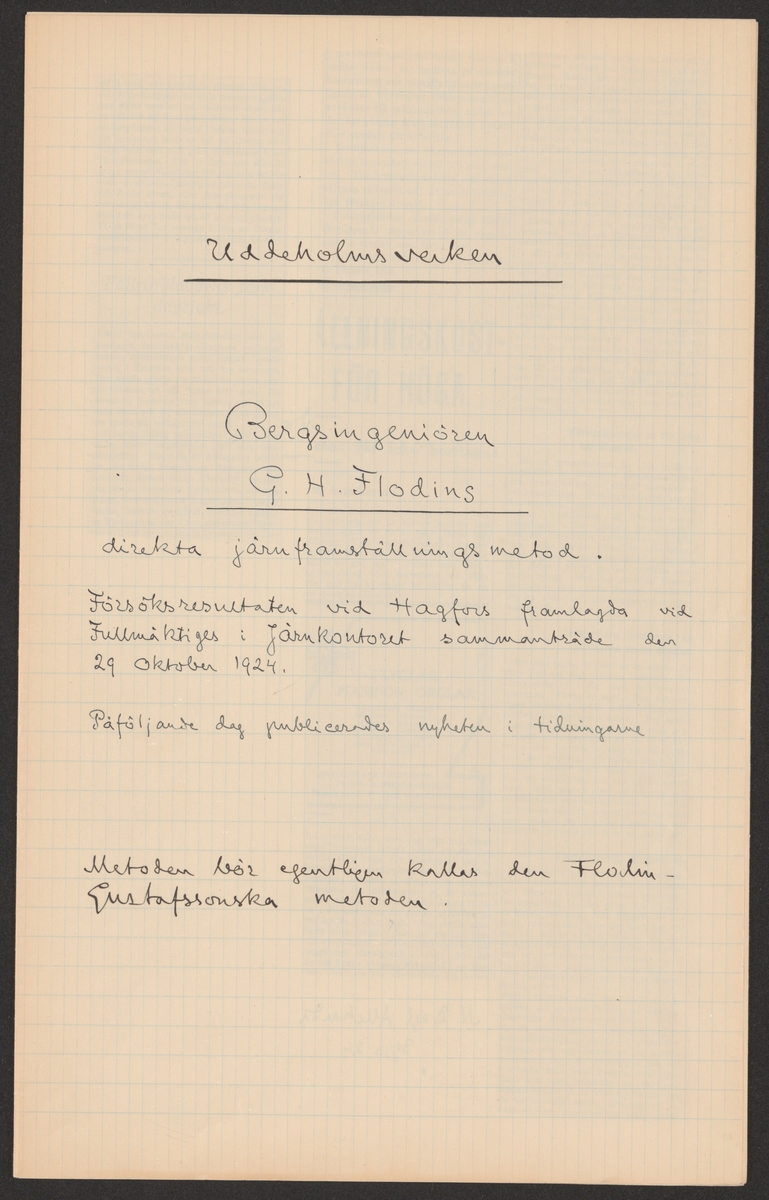 Uddeholmsverken
Bergsingeniören
G. H. Flodins
direkta järnframställningsmetod.
Försöksresultaten vid Hagfors framlagda vid
Fullmäktiges i Järnkontoret sammanträde den
29 Oktober 1924.
Påföljande dag publicerades nyheten i tidningarne
Metoden bör egentligen kallas den Flodin-
Gustafssonska metoden.